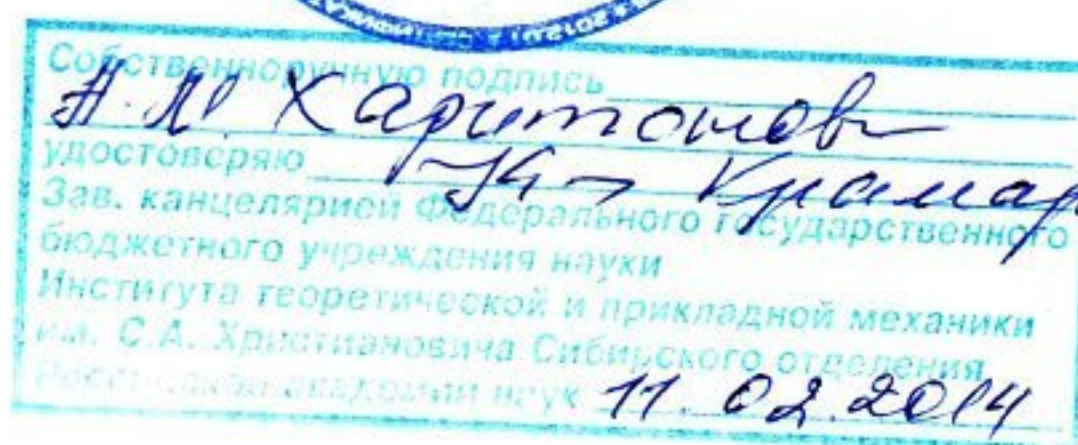 Собственноручную подпись
А.М. Харитонов
удостоверяю Крамар
Зав. канцелярией Федерального государственного
бюджетного учреждения науки
Института теоретической и прикладной механики
им. С.А. Христиановича Сибирского отделения
Российской академии наук 11.02.2014